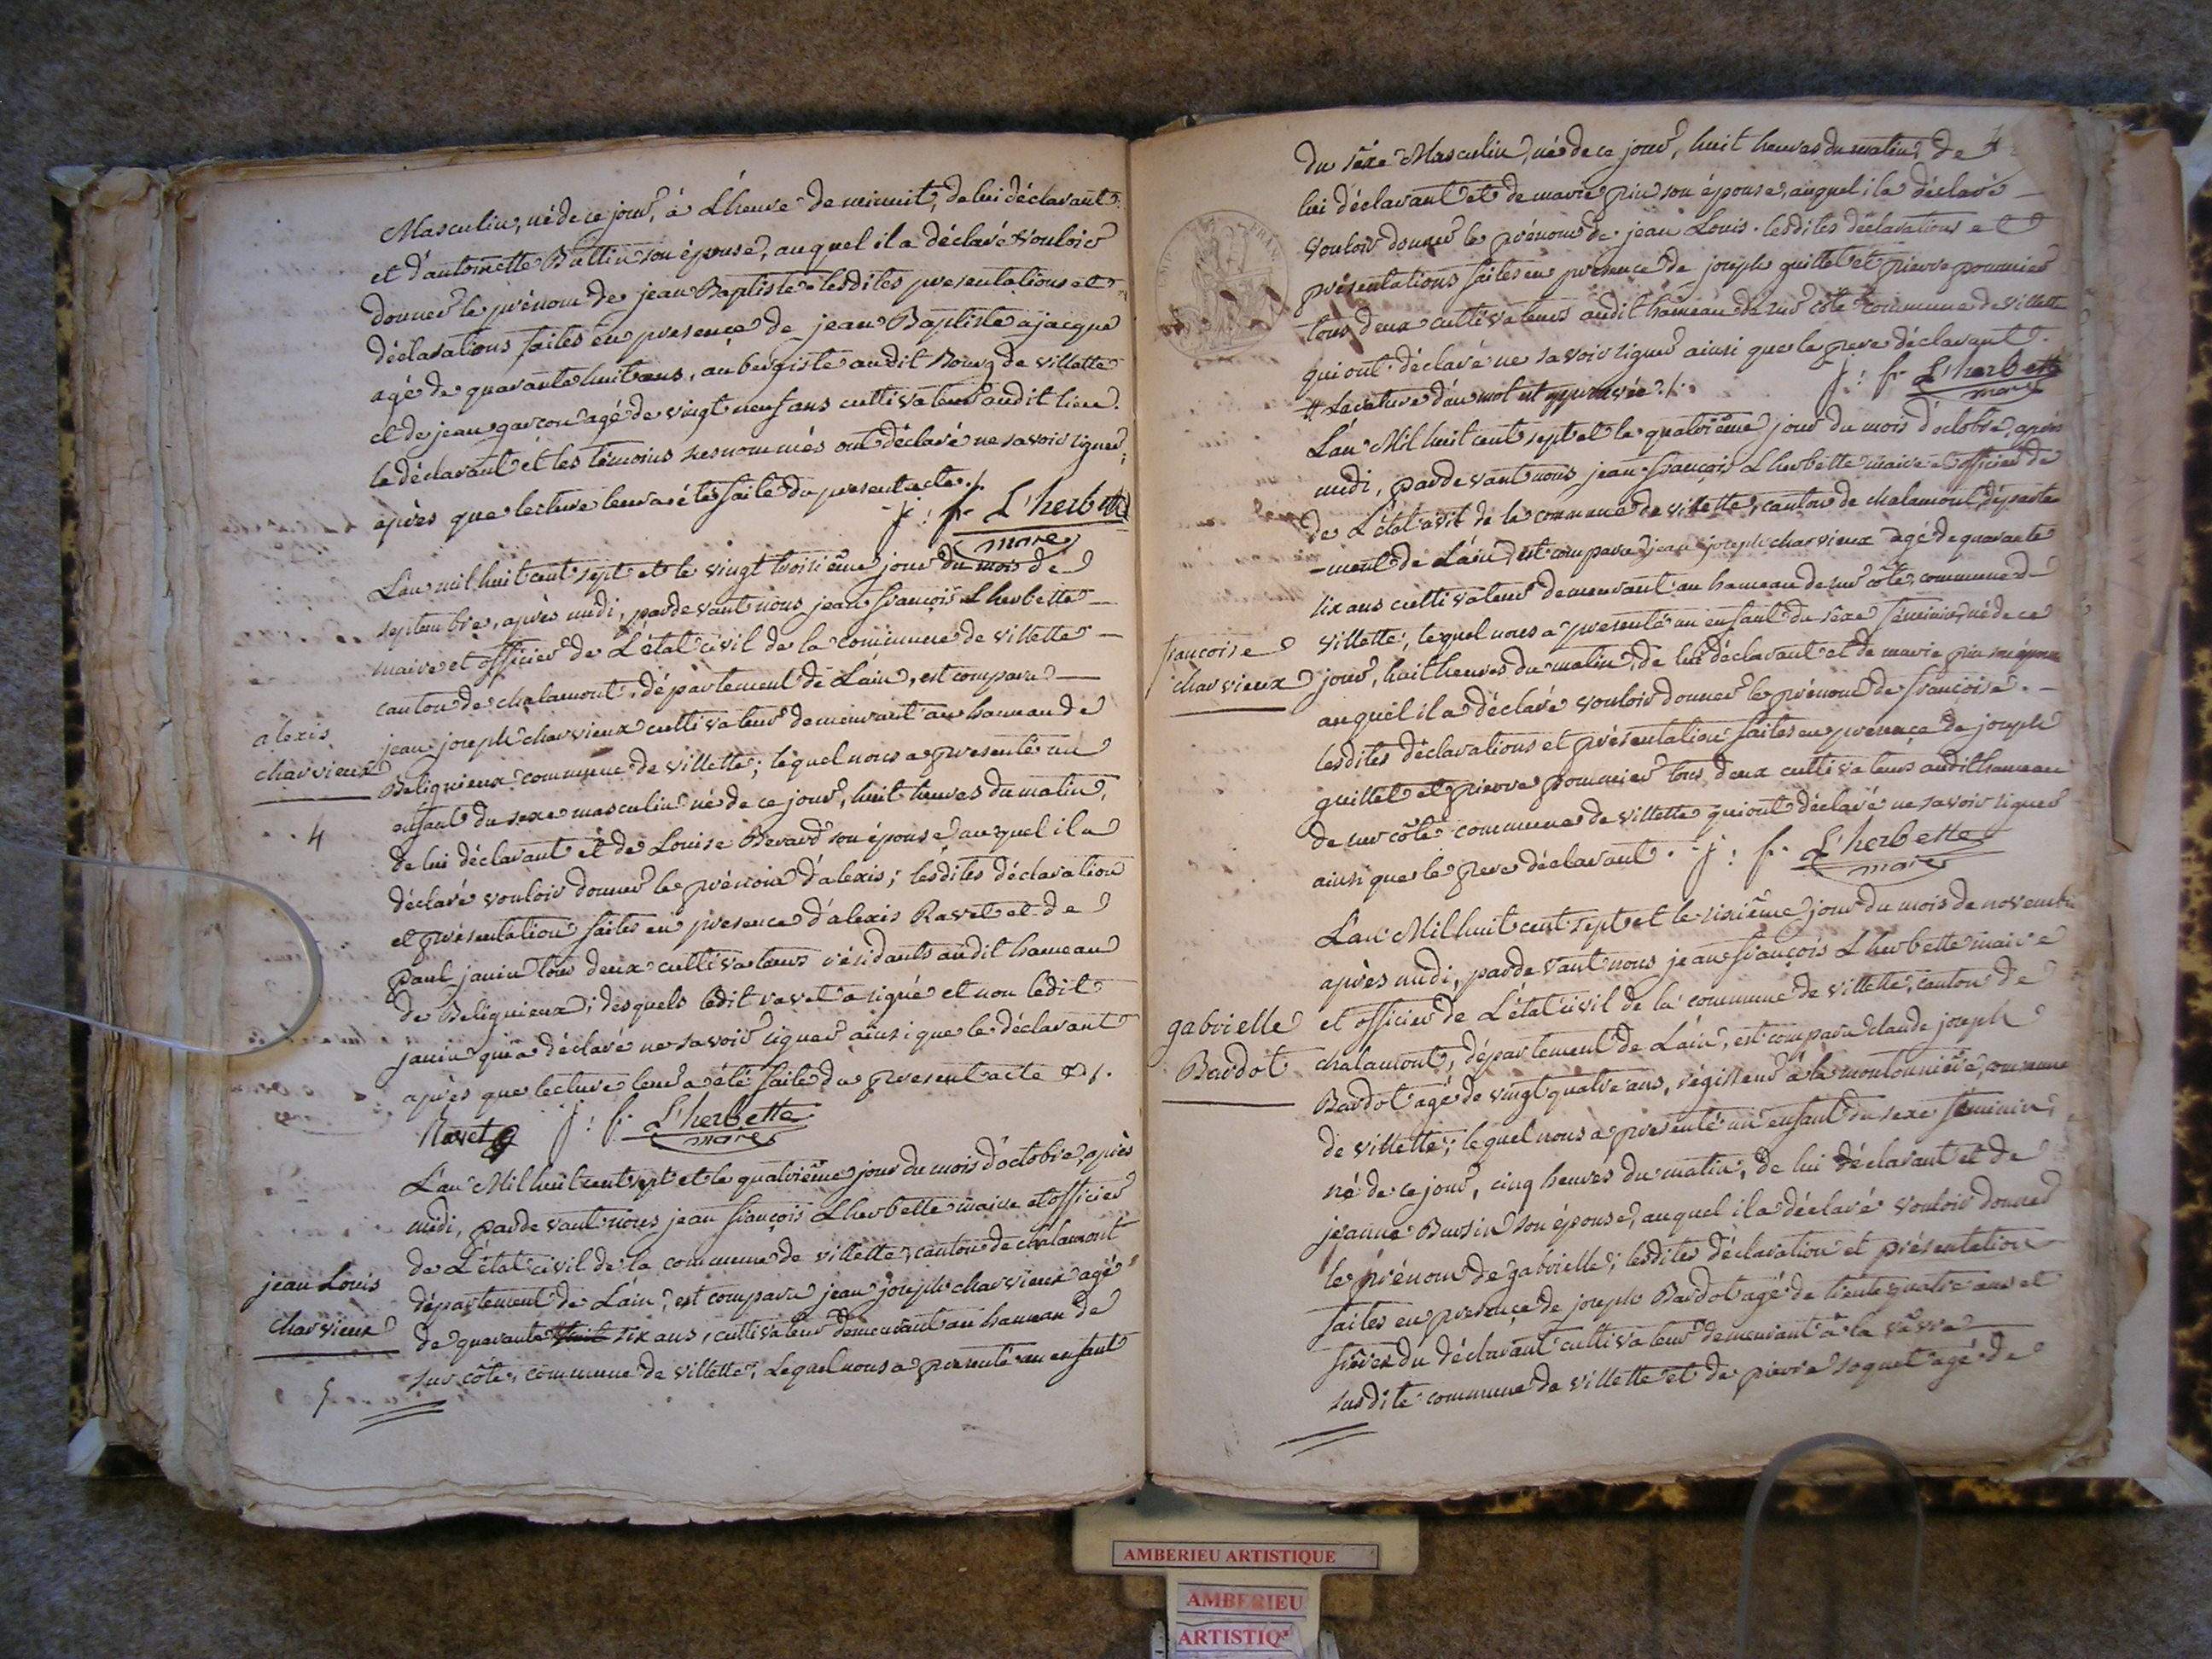 Masculin, né de ce jour, à L'heure de minuit, de lui déclarant
et d'antoinette Buttin son épouse, auquel il a déclaré vouloir
donner le prénom de jean Baptiste lesdites presentations et
déclarations faites en presence de jean Baptiste
agé de quarante huit ans, aubergiste audit Bourg de villette
et de jean garçon agé de vingt neuf ans cultivateur audit lieu.
le déclarant et les témoins susnommés ont déclaré ne savoir signer,
après que lecture leur a été faite du present acte ./.
j: f. L'herbette
maire
L'an mil huit cent sept et le vingt troisième jour du mois de
septembre, après midi, pardevant nous jean françois Lherbette
maire et officier de L'état civil de la commune de villette
canton de chalamont, département de L'ain, est comparu
alexis
charvieux
4
jean joseph charvieux cultivateur demeurant au hameau de
Beligneux commune de villette; lequel nous a presenté un
enfant du sexe masculin né de ce jour, huit heures du matin,
de lui déclarant et de Louise Berard son épouse auquel il a
déclaré vouloir donner le prénom d'alexis; lesdites déclaration
et présentation faites en presence d'alexis Ravet et de
paul janin tous deux cultivateurs résidants audit hameau
de Beligneux; desquels ledit ravet a signé et non ledit
janin qui a déclaré ne savoir signer ainsi que le déclarant
après que lecture leur a été faite du present acte ./.
Ravet j: f. L'herbette
maire
L'an Mil huit cent sept et le quatrième jour du mois d'octobre, après
midi, pardevant nous jean françois Lherbette maire et officier
de L'état civil de la commune de villette, canton de chalamont
jean Louis
charvieux
5
département de L'ain, est comparu jean joseph charvieux agé
de quarante huit six ans, cultivateur demeurant au hameau de
sur côte, commune de villette, Lequel nous a presenté un enfant
4
du sexe Masculin, né de ce jour, huit heures du matin, de
lui déclarant et de marie pin son épouse, auquel il a déclaré
vouloir donner le prénom de jean Louis. lesdites déclarations et
présentations faites en présence de joseph guillet et pierre pommier
tous deux cultivateurs audit hameau de sur côte commune de villette
qui ont déclaré ne savoir signer ainsi que le pere déclarant.
# La rature d'un mot est approuvée ./.
j: f. L'herbette
maire
L'an Mil huit cent sept et le quatrième jour du mois d'octobre, après
midi, pardevant nous jean françois Lherbette maire et officier de
de L'état civil de la commune de villette, canton de chalamont, départe
-ment de L'ain, est comparu jean joseph charvieux agé de quarante
six ans cultivateur demeurant au hameau de sur côte, commune de
françoise
charvieux
villette, lequel nous a presenté un enfant du sexe féminin, né de ce
jour, huit heures du matin, de lui déclarant et de marie pin son épouse
auquel il a déclaré vouloir donner le prénom de françoise.
lesdites déclarations et présentation faites en presence de joseph
guillet et pierre pommier tous deux cultivateurs audit hameau
de sur côte commune de villette qui ont déclaré ne savoir signer
ainsi que le pere déclarant. j: f. L'herbette
maire
L'an Mil huit cent sept et le sixième jour du mois de novembre
après midi, pardevant nous jean françois Lherbette maire
gabrielle
Bardot
et officier de L'état civil de la commune de villette, canton de
chalamont, département de L'ain, est comparu claude joseph
Bardot agé de vingt quatre ans, régisseur à la moutonnière, commune
de villette; lequel nous a presenté un enfant du sexe féminin,
né de ce jour, cinq heures du matin, de lui déclarant et de
jeanne Bursin son épouse, auquel il a déclaré vouloir donner
le prénom de gabrielle; lesdites déclaration et présentation
faites en presence de joseph Bardot agé de trente quatre ans et
frère du déclarant cultivateur demeurant à la
susdite commune de villette et de pierre soquet agé de
AMBERIEU ARTISTIQUE
AMBERIEU
ARTISTIQ